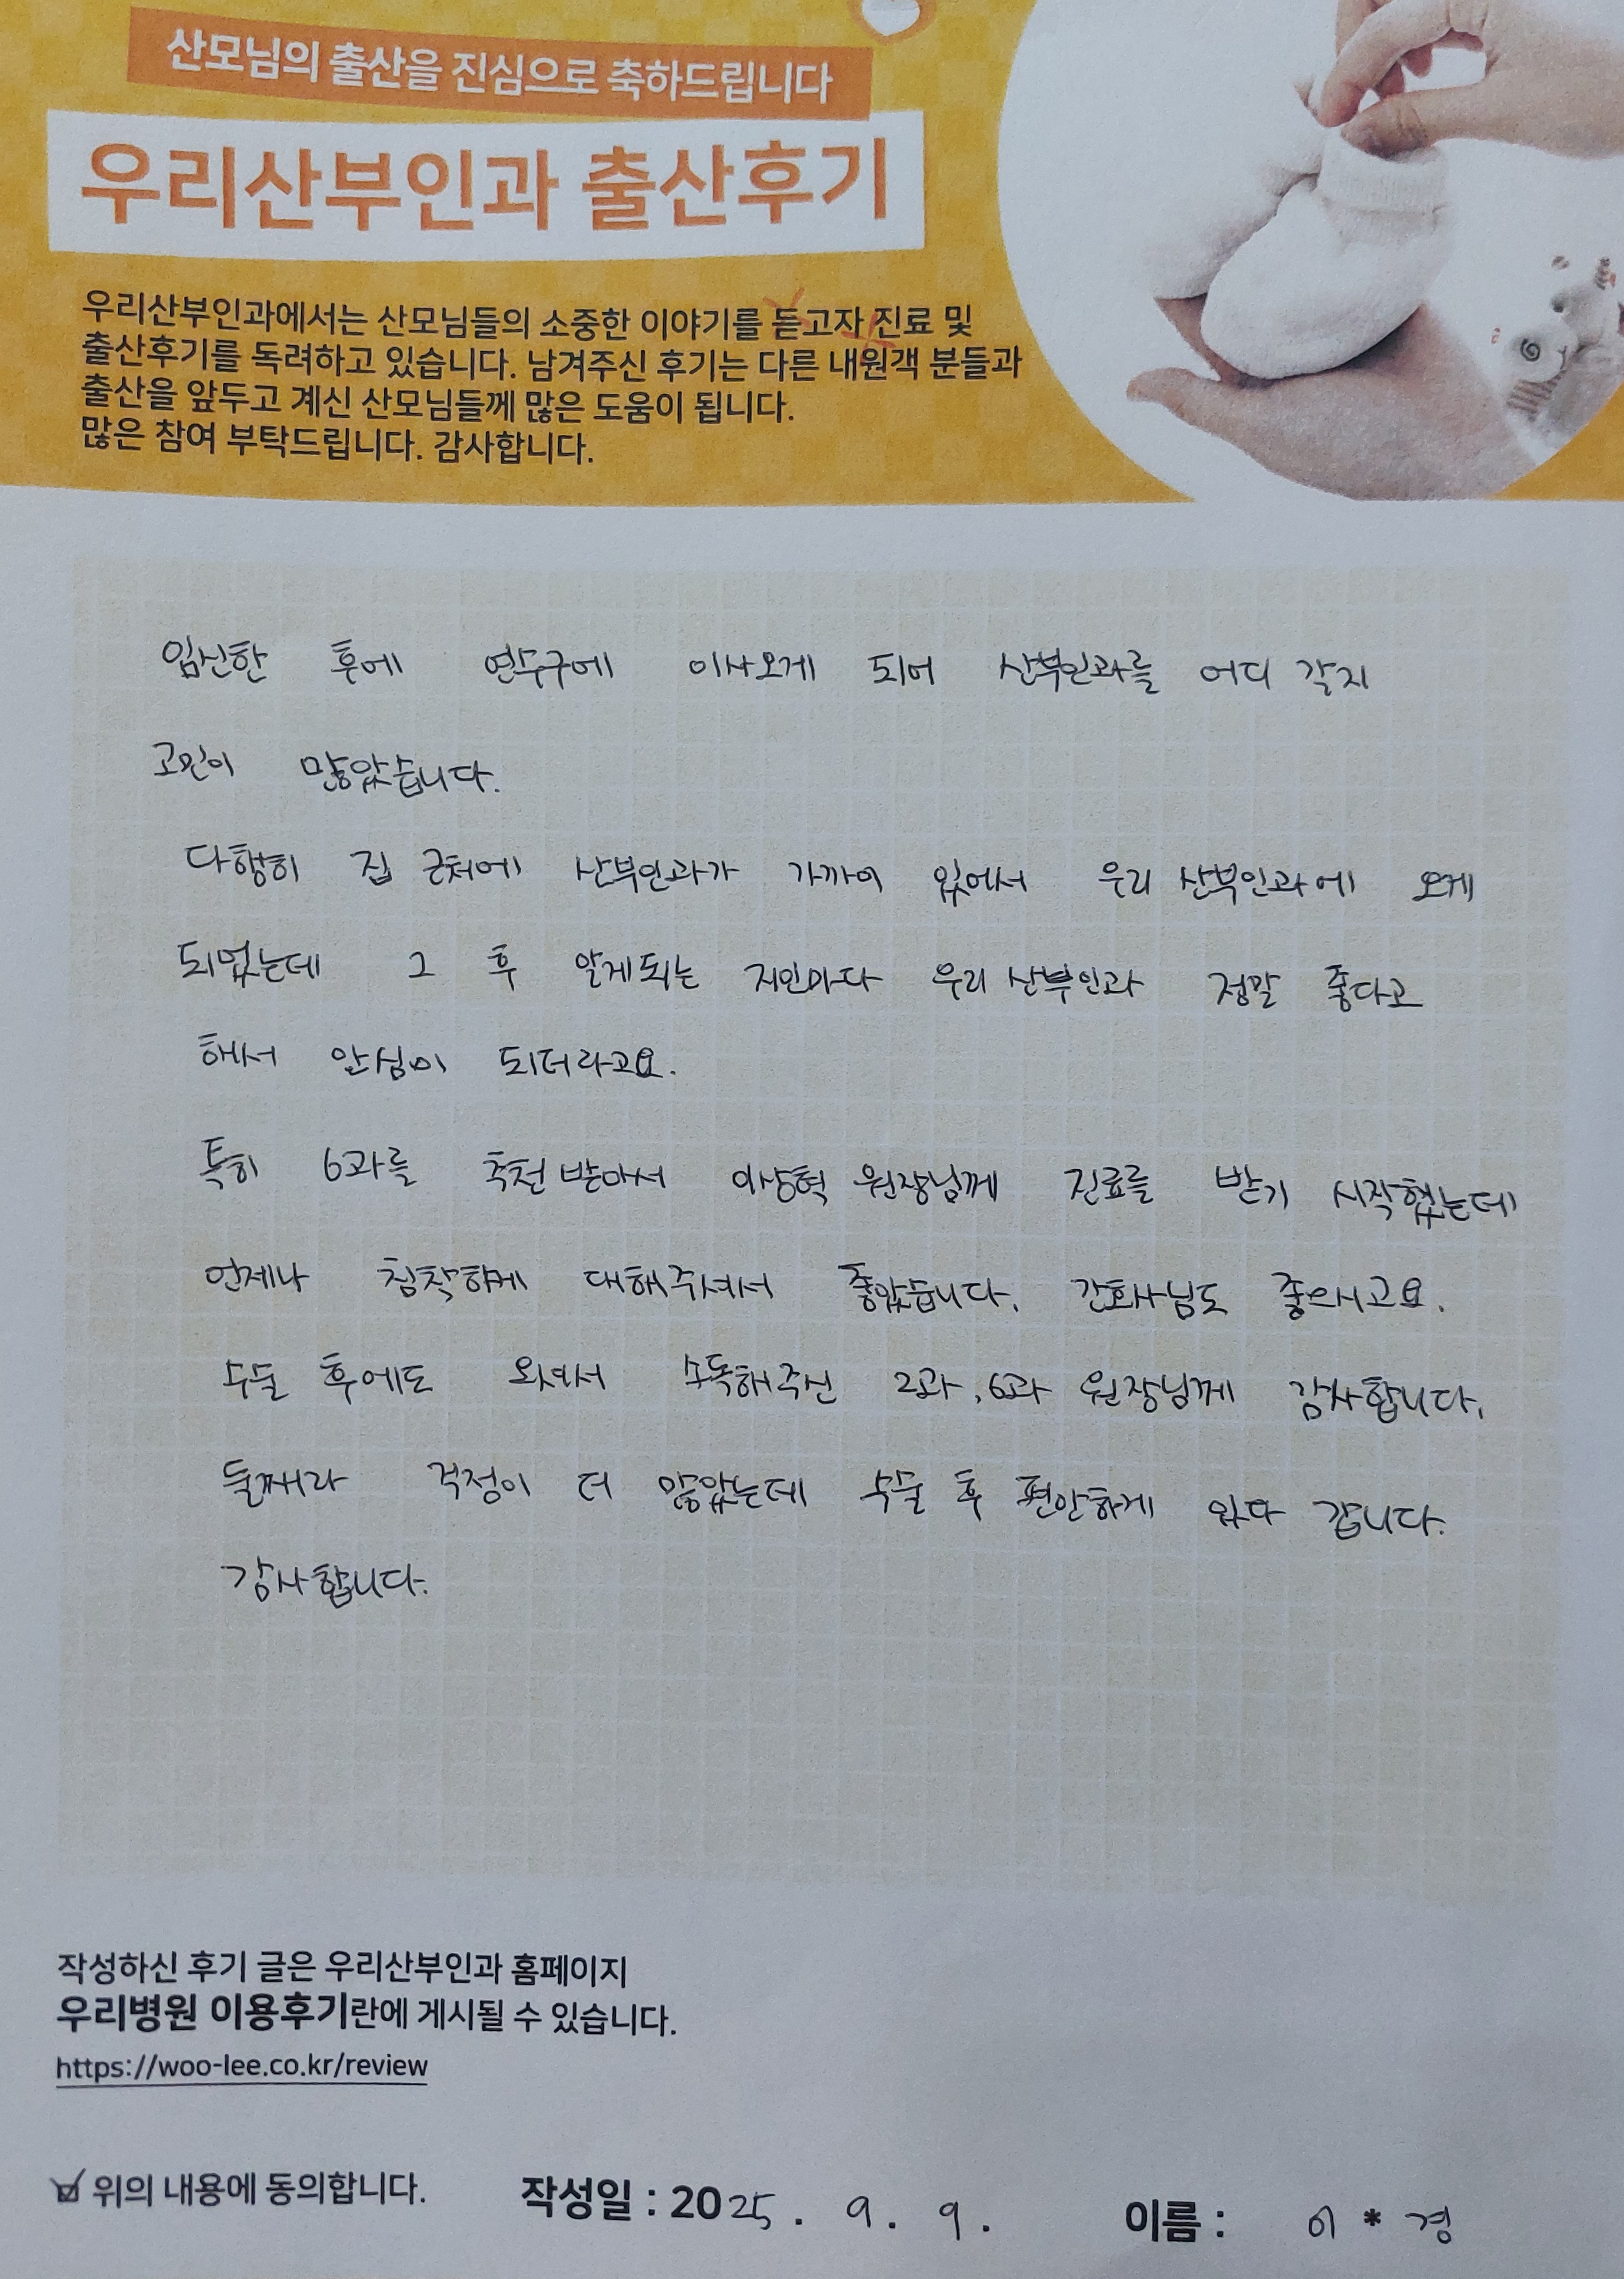 산모님의 출산을 진심으로 축하드립니다
우리산부인과 출산후기
우리산부인과에서는 산모님들의 소중한 이야기를 듣고자 진료 및
출산후기를 독려하고 있습니다. 남겨주신 후기는 다른 내원객 분들과
출산을 앞두고 계신 산모님들께 많은 도움이 됩니다.
많은 참여 부탁드립니다. 감사합니다.
임신한 후에 연수구에 이사오게 되어 산부인과를 어디 갈지
고민이 많았습니다.
다행히 집 근처에 산부인과가 가까이 있어서 우리 산부인과에 오게
되었는데 그 후 알게되는 지인마다 우리 산부인과 정말 좋다고
해서 안심이 되더라고요.
특히 6과를 추천 받아서 이상혁 원장님께 진료를 받기 시작했는데
언제나 침착하게 대해주셔서 좋았습니다. 간호사님도 좋으시고요.
수술 후에도 오셔서 소독해주신 2과, 6과 원장님께 감사합니다.
둘째라 걱정이 더 많았는데 수술 후 편안하게 있다 갑니다.
감사합니다.
작성하신 후기 글은 우리산부인과 홈페이지
우리병원 이용후기란에 게시될 수 있습니다.
https://woo-lee.co.kr/review
위의 내용에 동의합니다. 작성일 : 2025. 9. 9. 이름 : 이 * 경